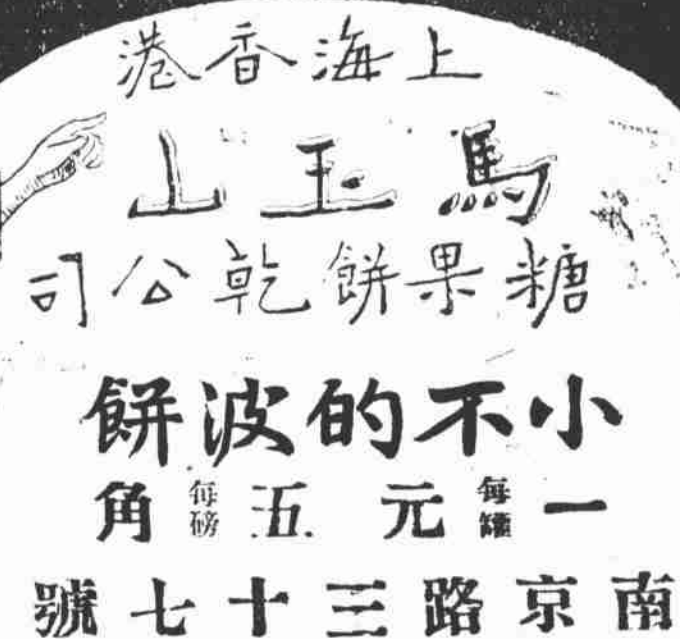 上海香港
馬玉山
糖果餅乾公司
小不的波餅
一每罐元五每磅角
南京路三十七號